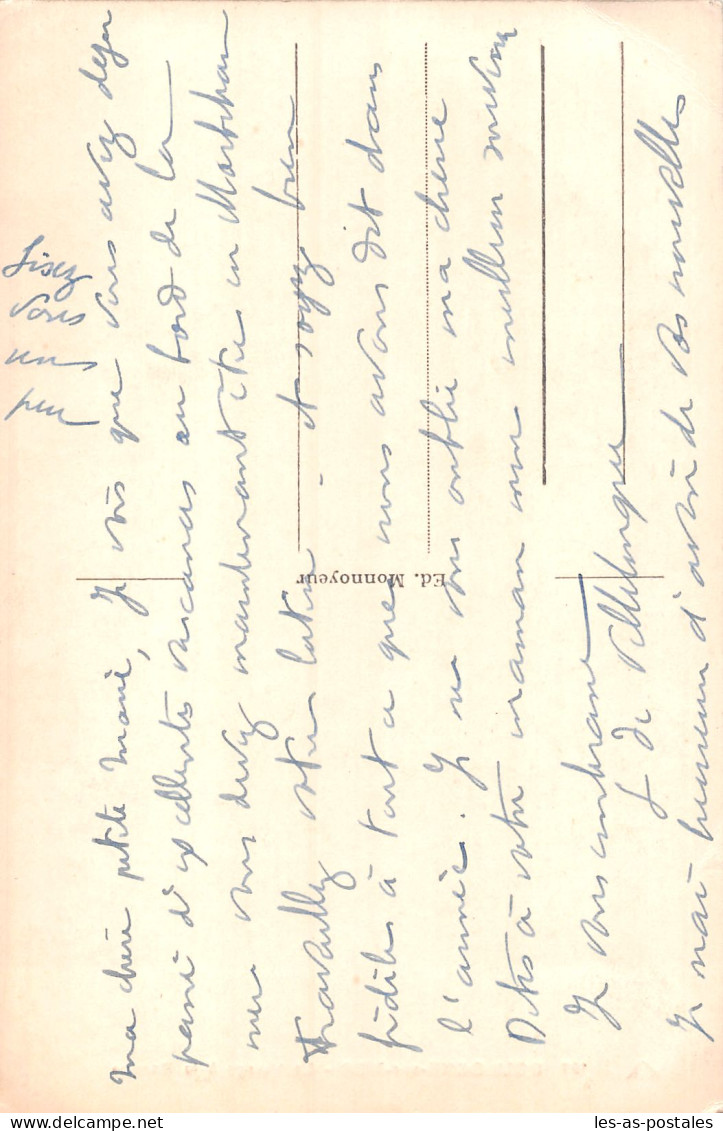 Ma chère petite Marie, Je vois que vous avez déjà
passé d'excellentes vacances au bord de la
mer vous devez maintenant être en Morbihan
Travaillez votre latin - et soyez bien
fidèles à tout ce que nous avons dit dans
l'année. Je ne vous oublie ma chérie
Dites à votre maman mon meilleur souvenir
Je vous embrasse
J de Villelongue
Je serai heureux d'avoir de vos nouvelles
Lisez
vous
un
peu
Ed. Monnoyeur
les-as-postales